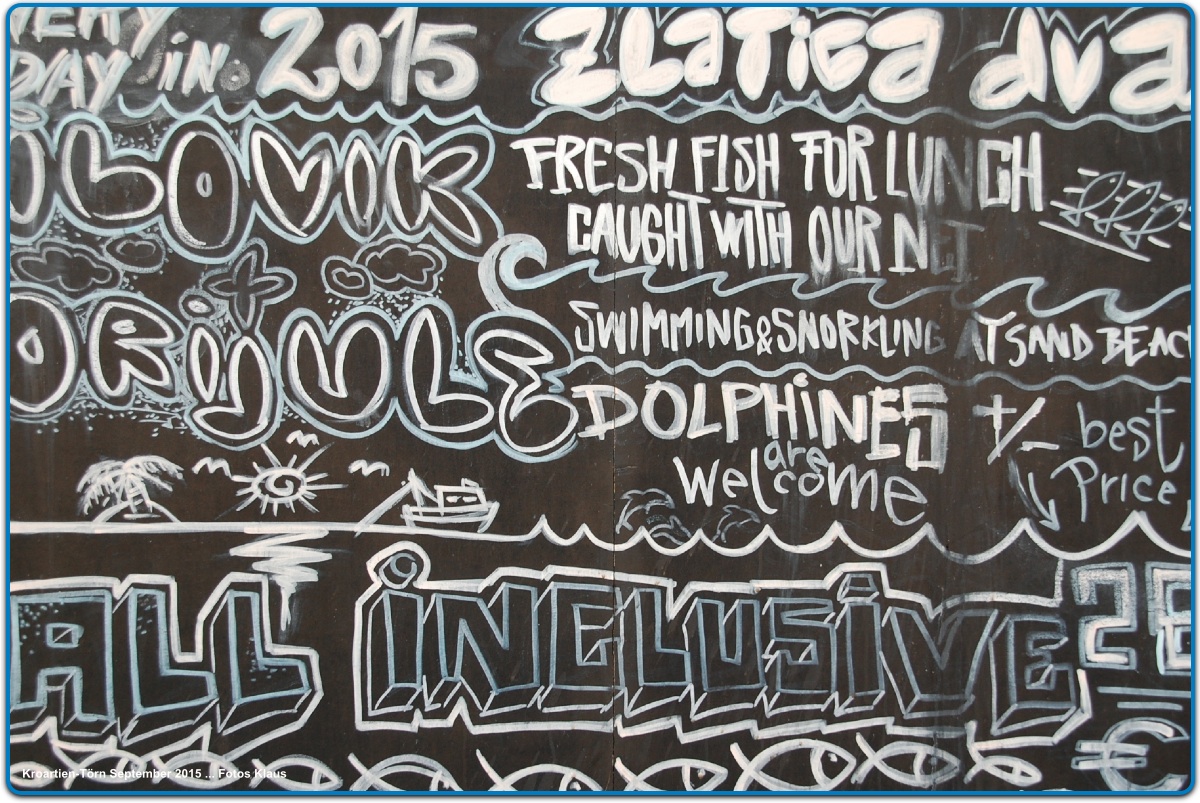 DAY in 2015 ZLATiCa dva
iLOViK
FRESH FISH FOR LUNCH
CAUGHT WITH OUR NET
ORiJULE
SWIMMING & SNORKLING AT SAND BEAC
DOLPHiNES
are
welcome
+/-
best
Price
ALL iNCLUSiVE
€
Kroartien-Törn September 2015 ... Fotos Klaus